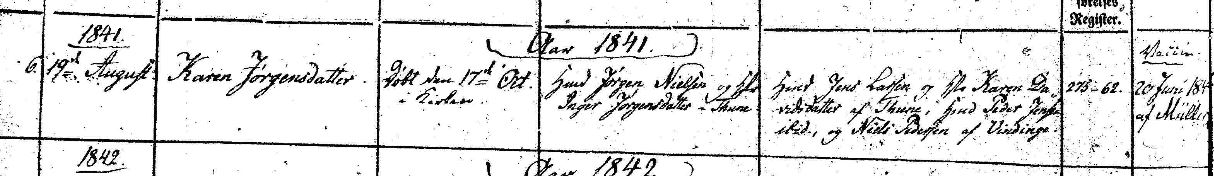 førelses
Register.
1841.
Aar 1841.
6. 19de August
Karen Jørgensdatter.
Døbt den 17de Oct.
i Kirken.
Huusmd Jørgen Nielsen og Hustru
Inger Jørgensdatter i Thune.
Huusmd Jens Larsen og Hustru Karen Da-
vidsdatter af Thune, Huusmd Peder Jensen
ibid., og Niels Pedersen af Vindinge.
275-62.
Vaccin
20 Juni 184
af Müller
1842.
Aar 1842